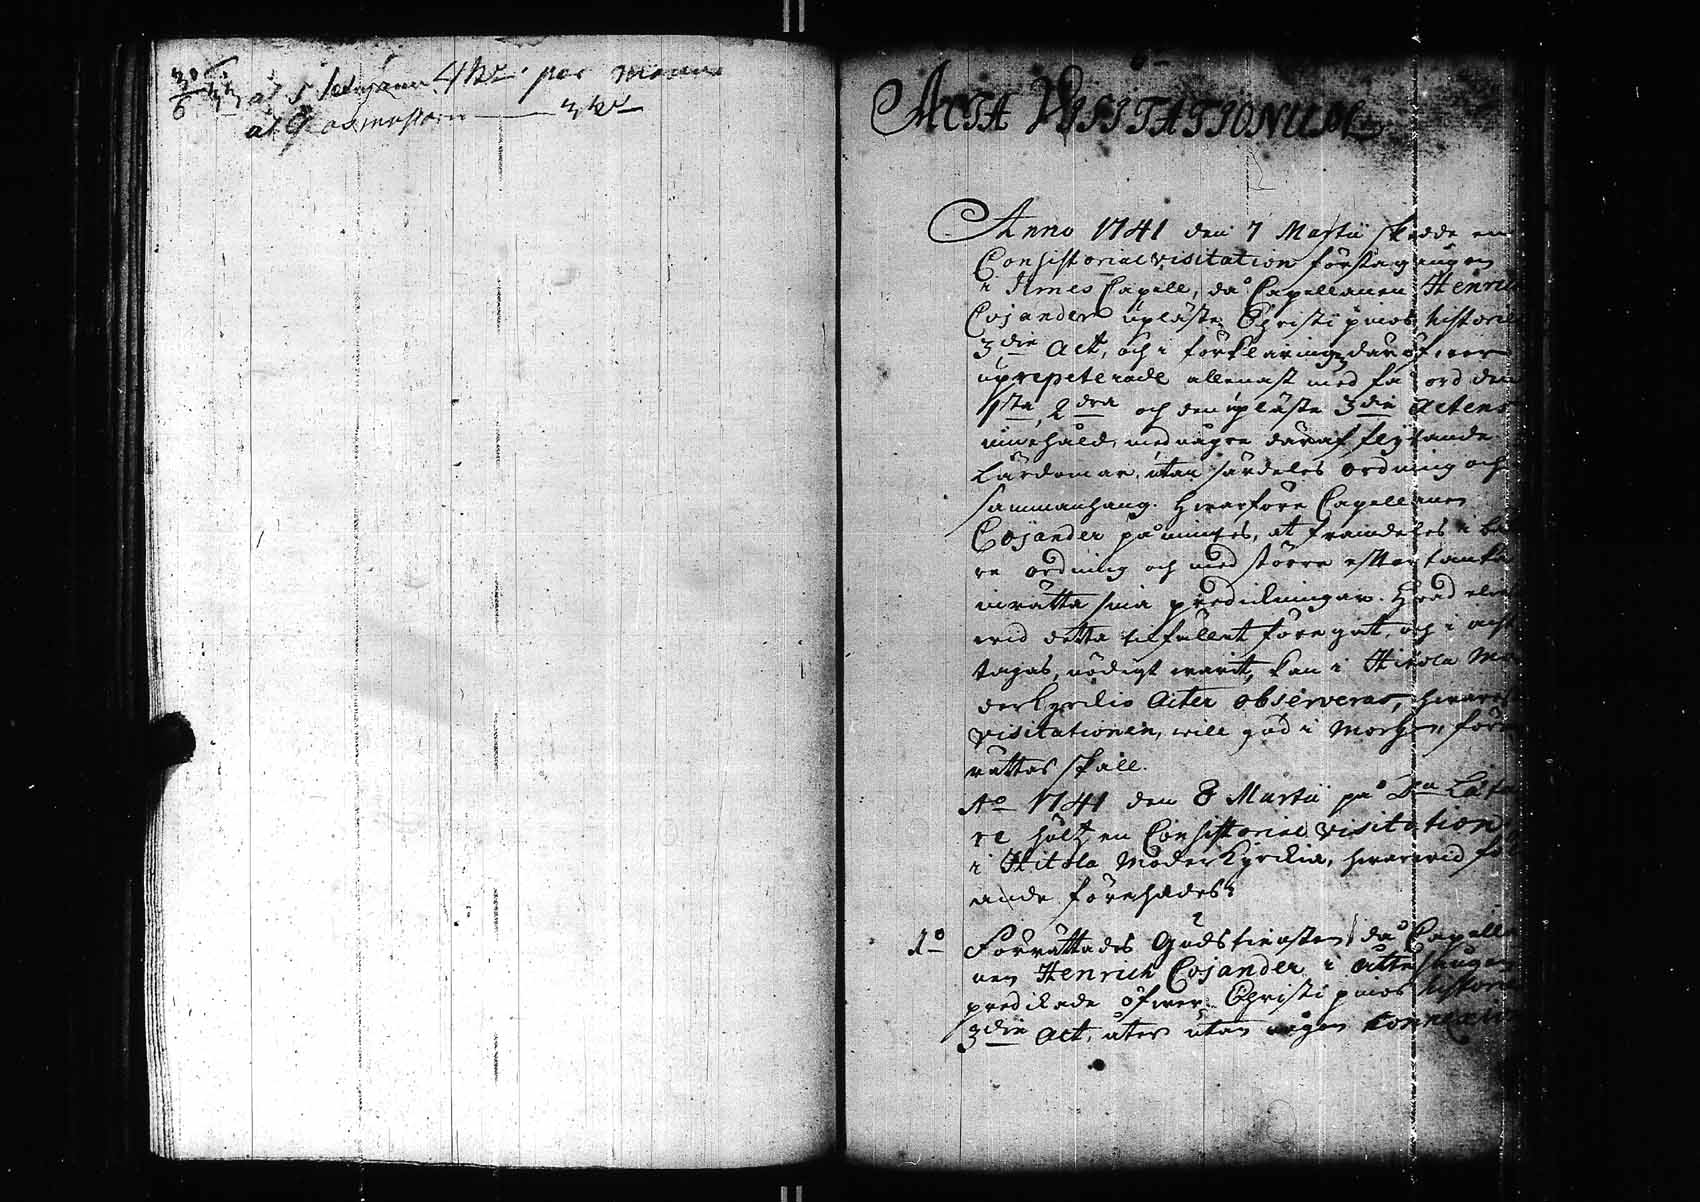 ACTA VISITATIONUM
Anno 1741 den 7 Martii skedde en
Consistorial visitation förstagången
i Ilmes Capell, då Capellanen Henrich
Cojander upläste Christi pinos historiens
3die Act, och i förklaringen daröfwer
uprepeterade allenast med få ord den
1sta, 2dra och den upläste 3die Actens
innehåld, med några däraf flytande
Lärdomar, utan särdeles ordning och
sammanhang. Hwarföre Capellanen
Cojander påmintes, at framdeles i bät
re ordning och med större eftertanka
inrätta sina predikningar. Hwad eljes
wid detta tilfället föregåt, och i acht
tagas, nödigt warit, kan i Hitola Mo
derkyrkio Acter observeras, hwarest
visitationen, will gud i Morgon, för
rättas skall.
Ao 1741 den 8 Martii på Dca Læta
re hölts en Consistorial visitation
i Hitola Moderkyrckia, hwarwid föl
ande förehades:
1o Förrättades Gudstiensten, då Capella
nen Henrich Cojander i Ottesången
predikade öfwer Christi pinos historiens
3die Act, äter utan någon connexion